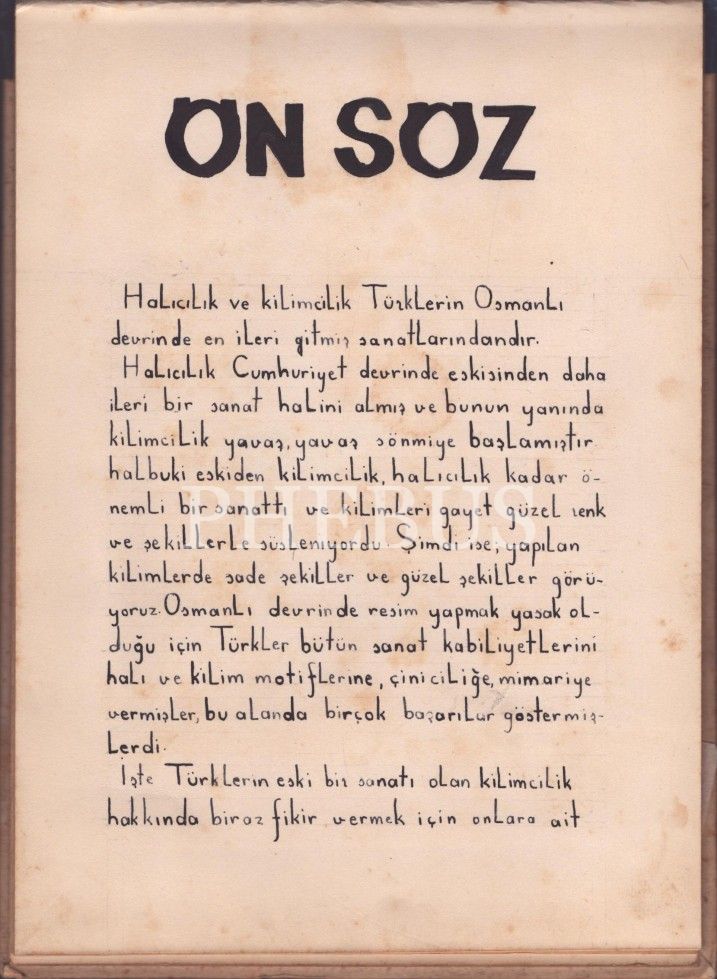 ÖN SÖZ
Halıcılık ve kilimcilik Türklerin Osmanlı
devrinde en ileri gitmiş sanatlarındandır.
Halıcılık Cumhuriyet devrinde eskisinden daha
ileri bir sanat halini almış ve bunun yanında
kilimcilik yavaş, yavaş sönmiye başlamıştır
halbuki eskiden kilimcilik, halıcılık kadar ö-
nemli bir sanattı ve kilimleri gayet güzel renk
PHEBUS
ve şekillerle süsleniyordu Şimdi ise, yapılan
kilimlerde sade şekiller ve güzel şekiller görü-
yoruz. Osmanlı devrinde resim yapmak yasak ol-
duğu için Türkler bütün sanat kabiliyetlerini
halı ve kilim motiflerine, çiniciliğe, mimariye
vermişler, bu alanda birçok başarılar göstermiş-
lerdi.
İşte Türklerin eski bir sanatı olan kilimcilik
hakkında biraz fikir vermek için onlara ait